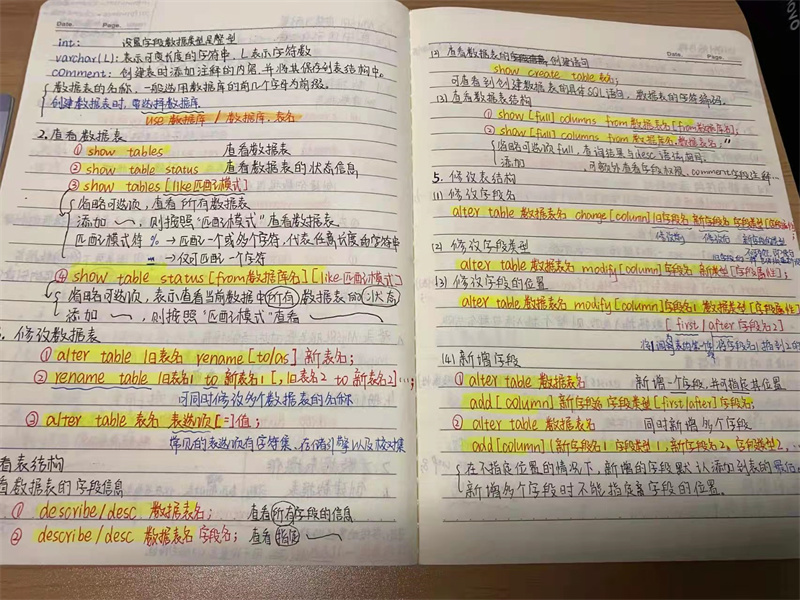 Date. Page.
int: 设置字段数据类型是整型
varchar(L): 表示可变长度的字符串, L表示字符数
comment: 创建表时添加注释的内容, 并将其保存到表结构中。
数据表的名称, 一般选用数据库的前几个字符为前缀。
创建数据表时, 需选择数据库
use 数据库 / 数据库.表名
2.查看数据表
① show tables 查看数据表
② show table status 查看数据表的状态信息
③ show tables [like匹配模式]
省略可选项, 查看所有数据表
添加 , 则按照“匹配模式”查看数据表
匹配模式符 % → 匹配一个或多个字符, 代表任意长度的字符串
_ → 仅可匹配一个字符
④ show table status [from数据库名] [like匹配模式]
省略可选项, 表示查看当前数据库中所有数据表的状态
添加 , 则按照“匹配模式”查看
. 修改数据表
① alter table 旧表名 rename [to/as] 新表名;
② rename table 旧表名1 to 新表名1 [, 旧表名2 to 新表名2]…;
可同时修改多个数据表的名称
③ alter table 表名 表选项[=]值;
常见的表选项有字符集、存储引擎以及校对集
看表结构
看数据表的字段信息
① describe/desc 数据表名; 查看所有字段的信息
② describe/desc 数据表名 字段名; 查看指定
Date. Page.
(2) 查看数据表的创建语句
show create table 表名;
可查看到创建数据表的具体SQL语句, 数据表的字符编码。
(3) 查看数据表结构
① show [full] columns from 数据表名 [from数据库名];
② show [full] columns from 数据库名.数据表名;
省略可选项full, 查询结果与desc语法相同。
添加 , 可额外查看字段权限, comment字段注释…
5. 修改表结构
(1) 修改字段名
alter table 数据表名 change[column] 旧字段名 新字段名 字段类型 [字段属性];
修改前 修改后 新字段的类型
(2) 修改字段类型
alter table 数据表名 modify [column] 字段名 新类型 [字段属性];
(3) 修改字段的位置
alter table 数据表名 modify [column] 字段名1 数据类型 [字段属性]
[first/after 字段名2]
(4) 新增字段
① alter table 数据表名 新增一个字段, 并可指定其位置
add [column] 新字段名 字段类型 [first/after] 字段名;
② alter table 数据表名 同时新增多个字段
add [column] (新字段名1 字段类型1, 新字段名2 字段类型2, …
在不指定位置的情况下, 新增的字段默认添加到表的最后。
新增多个字段时不能指定字段的位置。